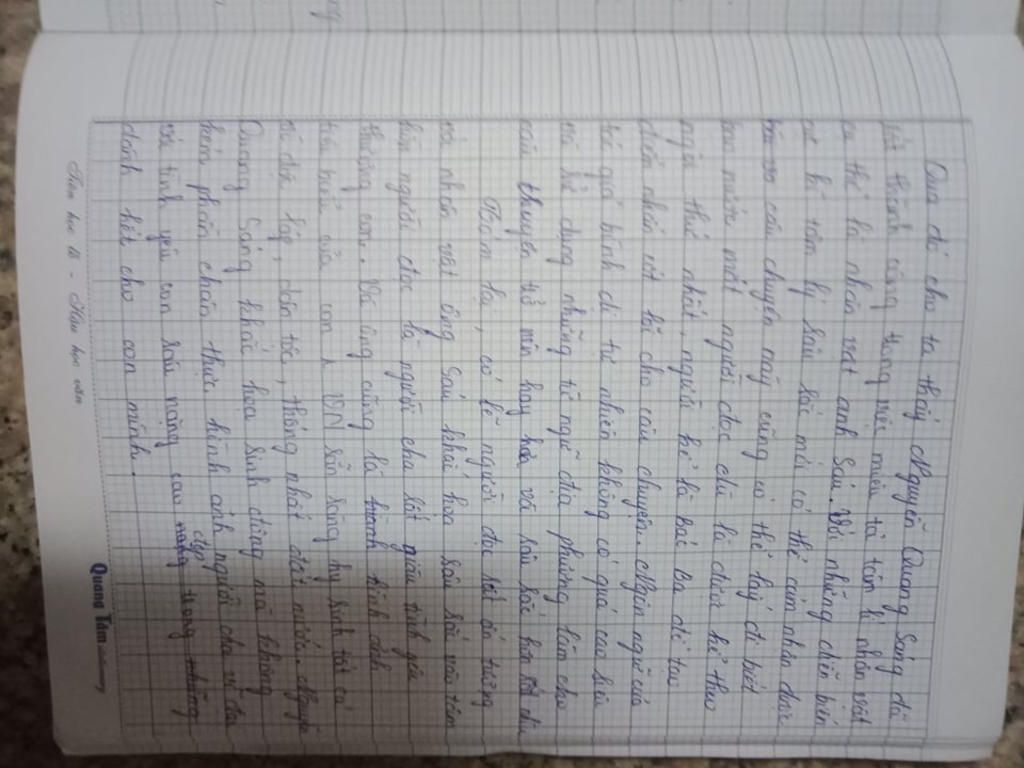 Qua đó cho ta thấy Nguyễn Quang Sáng đã
rất thành công trong việc miêu tả tâm lí nhân vật
cụ thể là nhân vật anh Sáu. Với những diễn biến
tâm lý sâu sắc mới có thể cảm nhận được
câu chuyện này cũng có thể lấy đi biết
bao nước mắt người đọc dù là dưới kể theo
ngôi thứ nhất, người kể là bác Ba đã tạo
điểm nhấn cốt lõi cho câu chuyện. Ngôn ngữ của
tác giả bình dị tự nhiên không có quá cao siêu
và sử dụng những từ ngữ địa phương làm cho
câu thuyện trở nên hay và sâu sắc hơn
Tóm lại, có lẽ người đọc rất ấn tượng
với nhân vật ông Sáu khắc họa sâu sắc vào tâm
hồn người đọc là người cha tốt giàu tình yêu
thương con. Và ông cũng là hình ảnh
tiêu biểu của con n VN sẵn sàng hy sinh tất cả
vì độc lập, dân tộc, thống nhất đất nước. Nguyễn
Quang Sáng khắc họa sinh động mà không
kém phần chân thực hình ảnh người cha vĩ đại
với tình yêu con sâu nặng cao đẹp
dành hết cho con mình.
Tiên học lễ - Hậu học văn
Quang Tâm